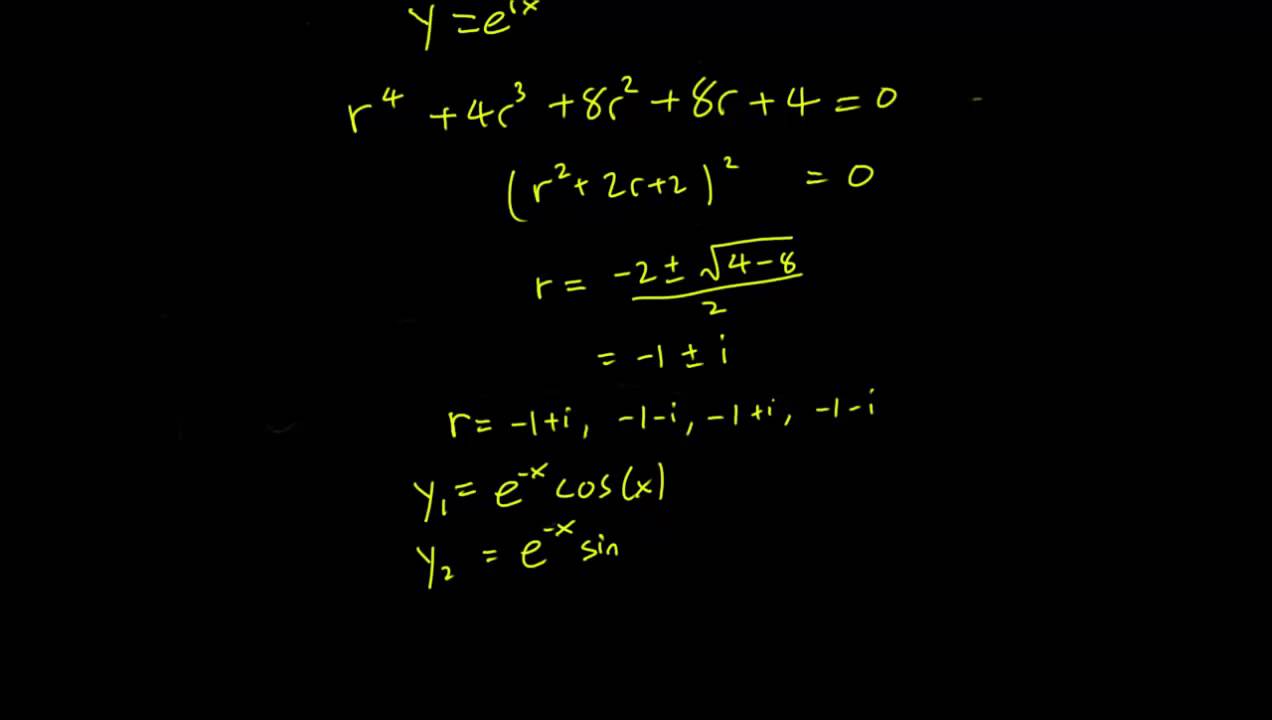 y = e^{rx}
r^4 + 4r^3 + 8r^2 + 8r + 4 = 0
(r^2 + 2r + 2)^2 = 0
r = \frac{-2 ± \sqrt{4-8}}{2}
= -1 ± i
r = -1+i, -1-i, -1+i, -1-i
y_1 = e^{-x} cos(x)
y_2 = e^{-x} sin